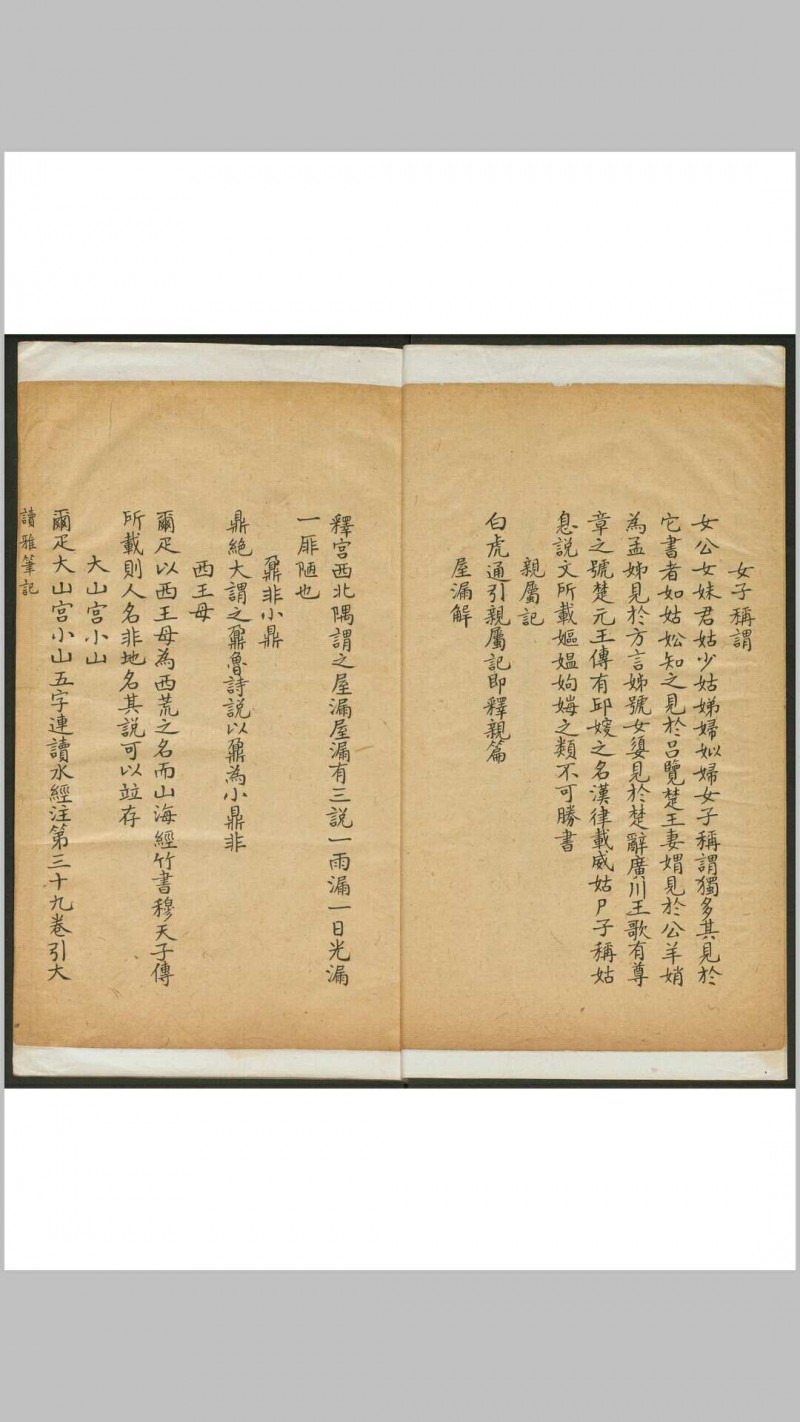 女子稱謂
女公女妹君姑少姑娣婦姒婦女子稱謂獨多其見於
它書者如姑妐知之見於呂覽楚王妻媦見於公羊娋
為孟姊見於方言姊號女嬃見於楚辭廣川王歌有尊
章之號楚元王傳有邱嫂之名漢律載威姑尸子稱姑
息說文所載嫗媼姁娒之類不可勝書
親屬記
白虎通引親屬記即釋親篇
屋漏解
釋宮西北隅謂之屋漏屋漏有三說一雨漏一日光漏
一厞陋也
鼐非小鼎
鼎絕大謂之鼐魯詩說以鼐為小鼎非
西王母
爾疋以西王母為西荒之名而山海經竹書穆天子傳
所載則人名非地名其說可以竝存
大山宮小山
爾疋大山宮小山五字連讀水經注第三十九卷引大
讀雅筆記